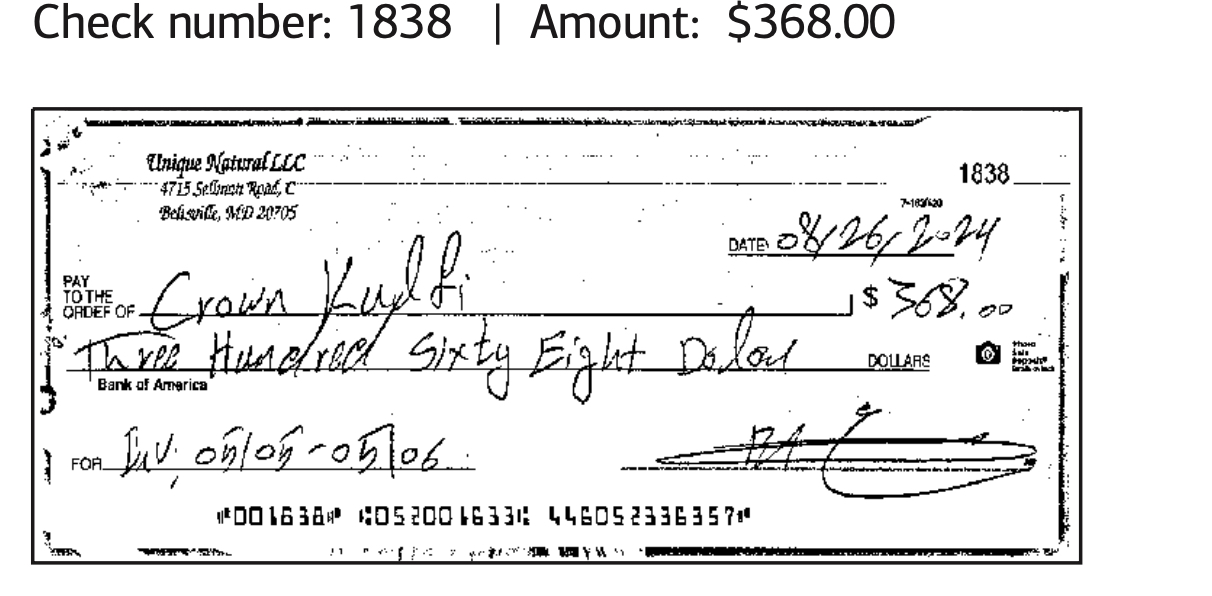 Check number: 1838 | Amount: $368.00
Unique Natural LLC
1838
4715 Sellman Road, C
Beltsville, MD 20705
DATE 08/26/2024
PAY
TO THE
ORDER OF Crown Kulfi $ 368.00
Three Hundred Sixty Eight Dolar DOLLARS
Bank of America
FOR Inv. 05/05-05/06
⑈001838⑈ ⑆052001633⑆ 446052336357⑈